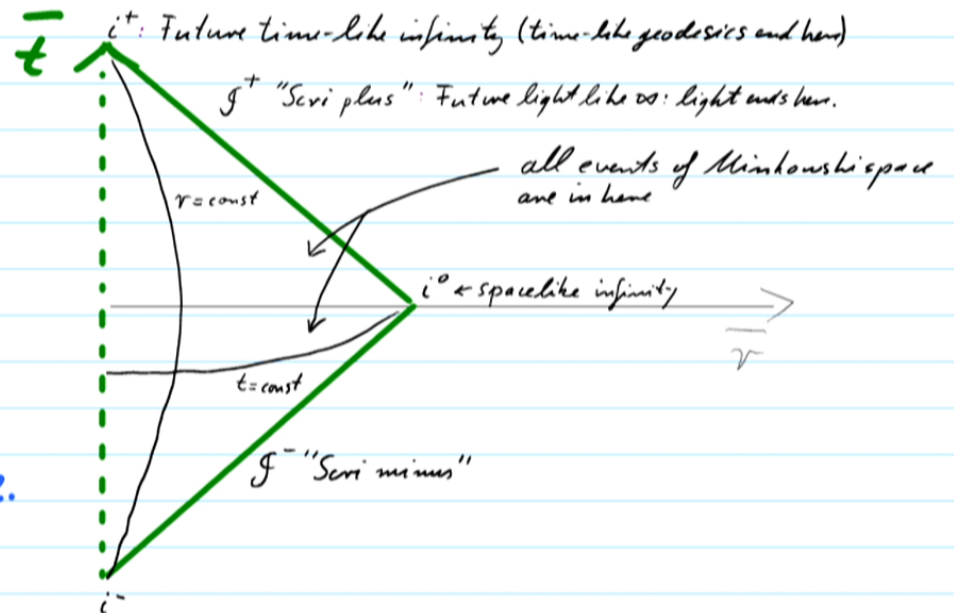 t̅
i⁺: Future time-like infinity (time-like geodesics end here)
𝒥⁺ "Scri plus": Future light like ∞: light ends here.
all events of Minkowski space
are in here
r = const
i⁰ ← spacelike infinity
r̅
t = const
𝒥⁻ "Scri minus"
2.
i⁻